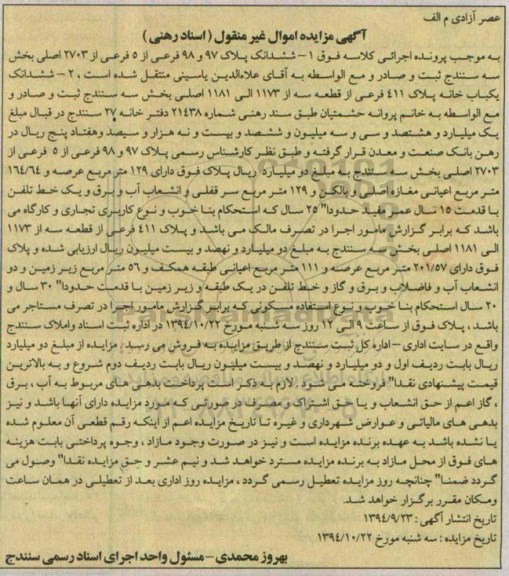 عصر آزادی م الف
آگهی مزایده اموال غیر منقول (اسناد رهنی)
به موجب پرونده اجرائی کلاسه فوق ۱– ششدانک پلاک ۹۷ و ۹۸ فرعی از ۵ فرعی از ۲۷۰۳ اصلی بخش
سه سنندج ثبت و صادر و مع الواسطه به آقای علاءالدین یاسینی منتقل شده است ، ۲ – ششدانک
یکباب خانه پلاک ۴۱۱ فرعی از قطعه سه از ۱۱۷۳ الی ۱۱۸۱ اصلی بخش سه سنندج ثبت و صادر و
مع الواسطه به خانم پروانه حشمتیان طبق سند رهنی شماره ۲۱۴۳۸ دفتر خانه ۲۷ سنندج در قبال مبلغ
یک میلیارد و هشتصد و سی و سه میلیون و ششصد و بیست و نه هزار و سیصد وهفتاد پنج ریال در
رهن بانک صنعت و معدن قرار گرفته و طبق نظر کارشناس رسمی پلاک ۹۷ و ۹۸ فرعی از ۵ فرعی از
۲۷۰۳ اصلی بخش سه سنندج به مبلغ دو میلیارد ریال پلاک فوق دارای ۱۲۹ متر مربع عرصه و ۱۶۴/۶۴
متر مربع اعیانی مغازه اصلی و بالکن و ۱۲۹ متر مربع سر قفلی و انشعاب آب و برق و یک خط تلفن
با قدمت ۱۵ سال عمر مفید حدودا" ۲۵ سال که استحکام بنا خوب و نوع کاربری تجاری و کارگاه می
باشد که برابر گزارش مامور اجرا در تصرف مالک می باشد و پلاک ۴۱۱ فرعی از قطعه سه از ۱۱۷۳
الی ۱۱۸۱ اصلی بخش سه سنندج به مبلغ دو میلیارد و نهصد و بیست میلیون ریال ارزیابی شده و پلاک
فوق دارای ۲۰۱/۵۷ متر مربع عرصه و ۱۱۱ متر مربع اعیانی طبقه همکف و ۵۶ متر مربع زیر زمین و دو
انشعاب آب و فاضلاب و برق و گاز و خط تلفن در یک طبقه و زیر زمین با قدمت حدود" ۳۰ سال و
۲۰ سال استحکام بنا خوب و نوع استفاده مسکونی که برابر گزارش مامور اجرا در تصرف مستاجر می
باشد ، پلاک فوق از ساعت ۹ الی ۱۲ روز سه شنبه مورخ ۱۳۹۴/۱۰/۲۲ در اداره ثبت اسناد واملاک سنندج
واقع در سایت اداری – اداره کل ثبت سنندج از طریق مزایده به فروش می رسد . مزایده از مبلغ دو میلیارد
ریال بابت ردیف اول و دو میلیارد و نهصد و بیست میلیون ریال بابت ردیف دوم شروع و به بالاترین
قیمت پیشنهادی نقدا" فروخته می شود . لازم به ذکر است پرداخت بدهی های مربوط به آب ، برق
، گاز اعم از حق انشعاب و یا حق اشتراک و مصرف در صورتی که مورد مزایده دارای آنها باشد و نیز
بدهی های مالیاتی و عوارض شهرداری و غیره تا تاریخ مزایده اعم از اینکه رقم قطعی آن معلوم شده
یا نشده باشد به عهده برنده مزایده است و نیز در صورت وجود مازاد ، وجوه پرداختی بابت هزینه
های فوق از محل مازاد به برنده مزایده مسترد خواهد شد و نیم عشر و حق مزایده نقدا" وصول می
گردد ضمنا" چنانچه روز مزایده تعطیل رسمی گردد ، مزایده روز اداری بعد از تعطیلی در همان ساعت
ومکان مقرر برگزار خواهد شد.
تاریخ انتشار آگهی : ۱۳۹۴/۹/۲۳
تاریخ مزایده : سه شنبه مورخ ۱۳۹۴/۱۰/۲۲
بهروز محمدی – مسئول واحد اجرای اسناد رسمی سنندج